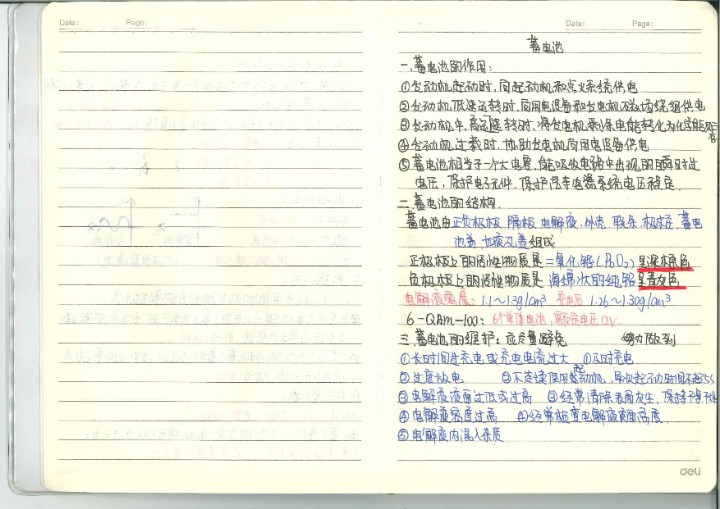 Date: Page:
Date: Page:
蓄电池
一.蓄电池的作用:
①发动机起动时,向起动机和点火系统供电
②发动机低速运转时,向用电设备和发电机磁场绕组供电
③发动机中、高速运转时,将发电机剩余电能转化为化学能
④发动机过载时,协助发电机向用电设备供电
⑤蓄电池相当于一个大电容,能吸收电路中出现的瞬时过
电压,保护电子元件,保护汽车电器系统电压稳定.
二.蓄电池的结构.
蓄电池由正负极板 隔板 电解液 外壳 联条 极柱 蓄电
池盖 加液孔盖组成
正极板上的活性物质是二氧化铅(PbO₂) 呈深棕色
负极板上的活性物质是 海绵状的纯铅 呈青灰色
电解液密度: 1.1~1.3g/cm³ 1.26~1.30g/cm³
6-QAm-100: 6个单体电池,额定电压12V
三.蓄电池的维护:应尽量避免 做到
①长时间过充电或充电电流过大 ①及时充电
②过度放电 ②不连续使用起动机,每次起动时间不超5s
③电解液液面过低或过高 ③经常清除表面灰尘,保持
④电解液密度过高 ④经常检查电解液液面高度.
⑤电解液内混入杂质.
deli